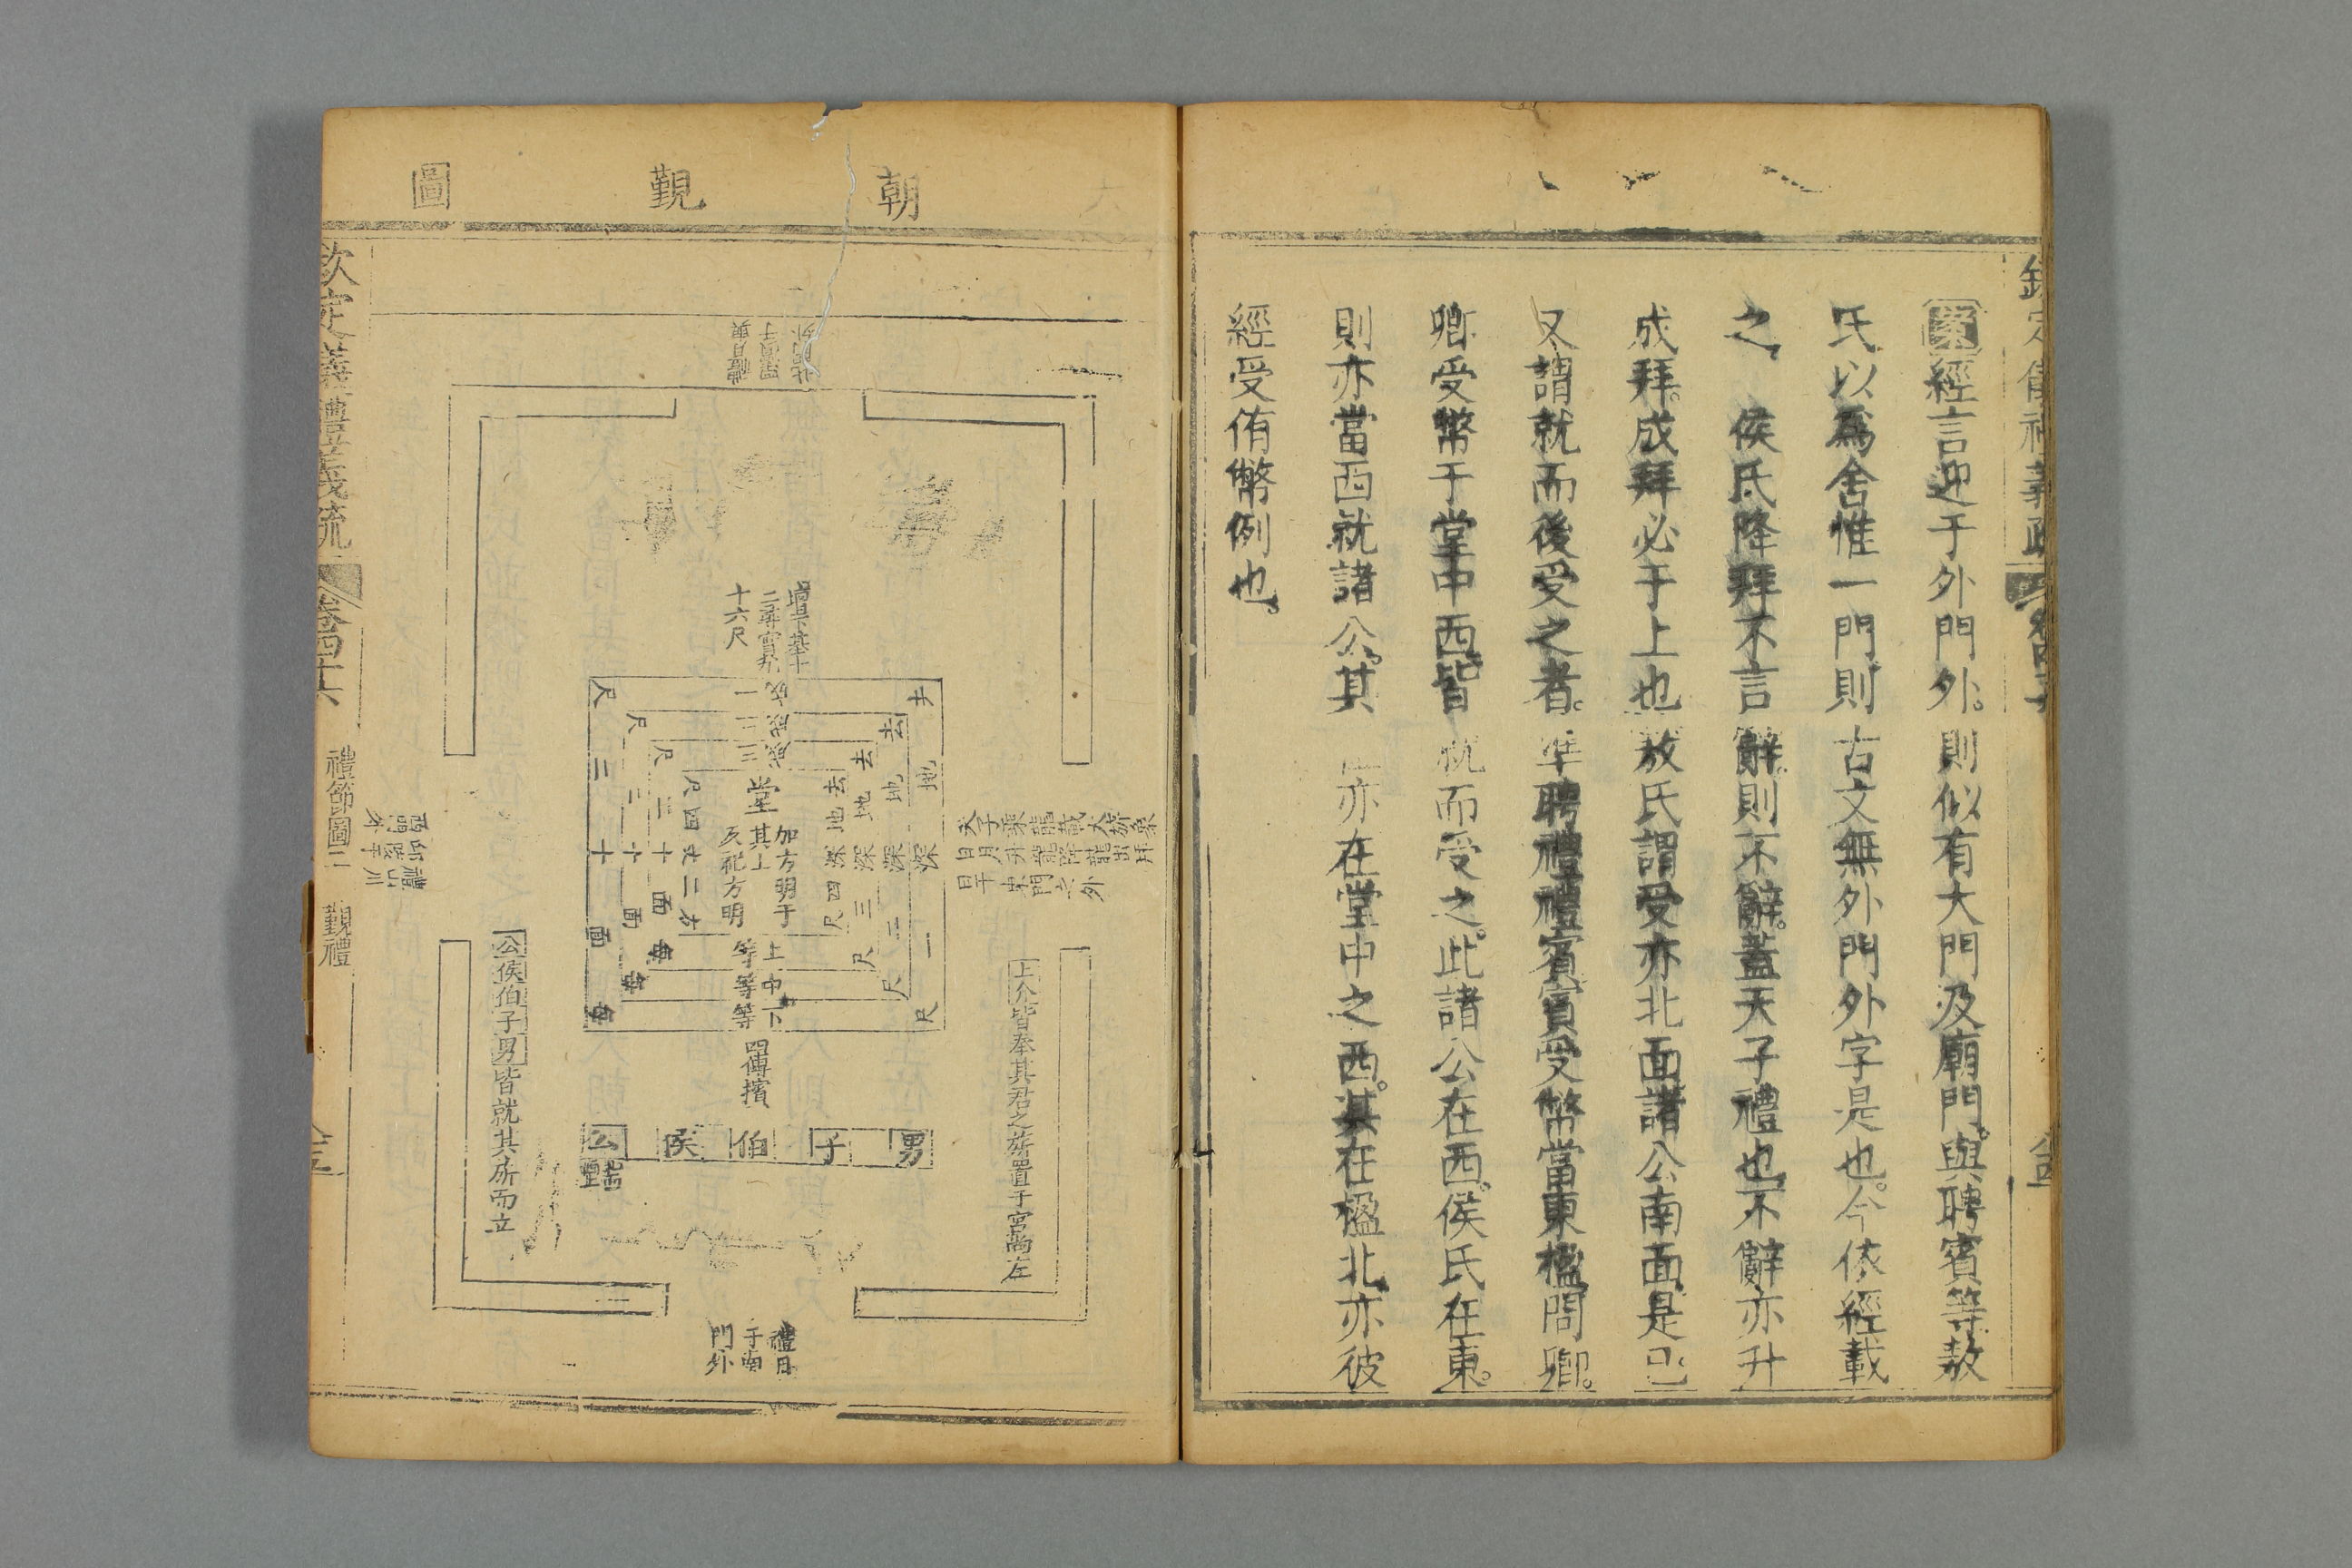 案經言迎于外門外。則似有大門及廟門。與聘賓等敖
氏以爲舍惟一門則古文無外門外字是也。今依經載
之 侯氏降拜不言辭。則不辭。蓋天子禮也不辭亦升
成拜。成拜必于上也敖氏謂受亦北面諸公南面是已
又謂就而後受之者。準聘禮禮賓賓受幣當東楹問卿。
卿受幣于堂中西皆就而受之。此諸公在西。侯氏在東。
則亦當西就諸公。其亦在堂中之西。其在楹北亦彼
經受侑幣例也。
朝覲圖
天子乘龍載大旂象
日月升龍降龍出拜
日于東門之外
上介皆奉其君之旂置于宮尚左
二尋實
十六尺
一成
二成
三成
堂
加方明于
其上
反祀方明
去地深四尺
去地深三尺
去地深二尺
地深一尺
上等
中等
下等
四傳擯
男
子
伯
侯
公
公侯伯子男皆就其旂而立
禮日
于南
門外
禮山川
丘陵于
西門外
欽定儀禮義疏
卷四十六
禮節圖二
覲禮